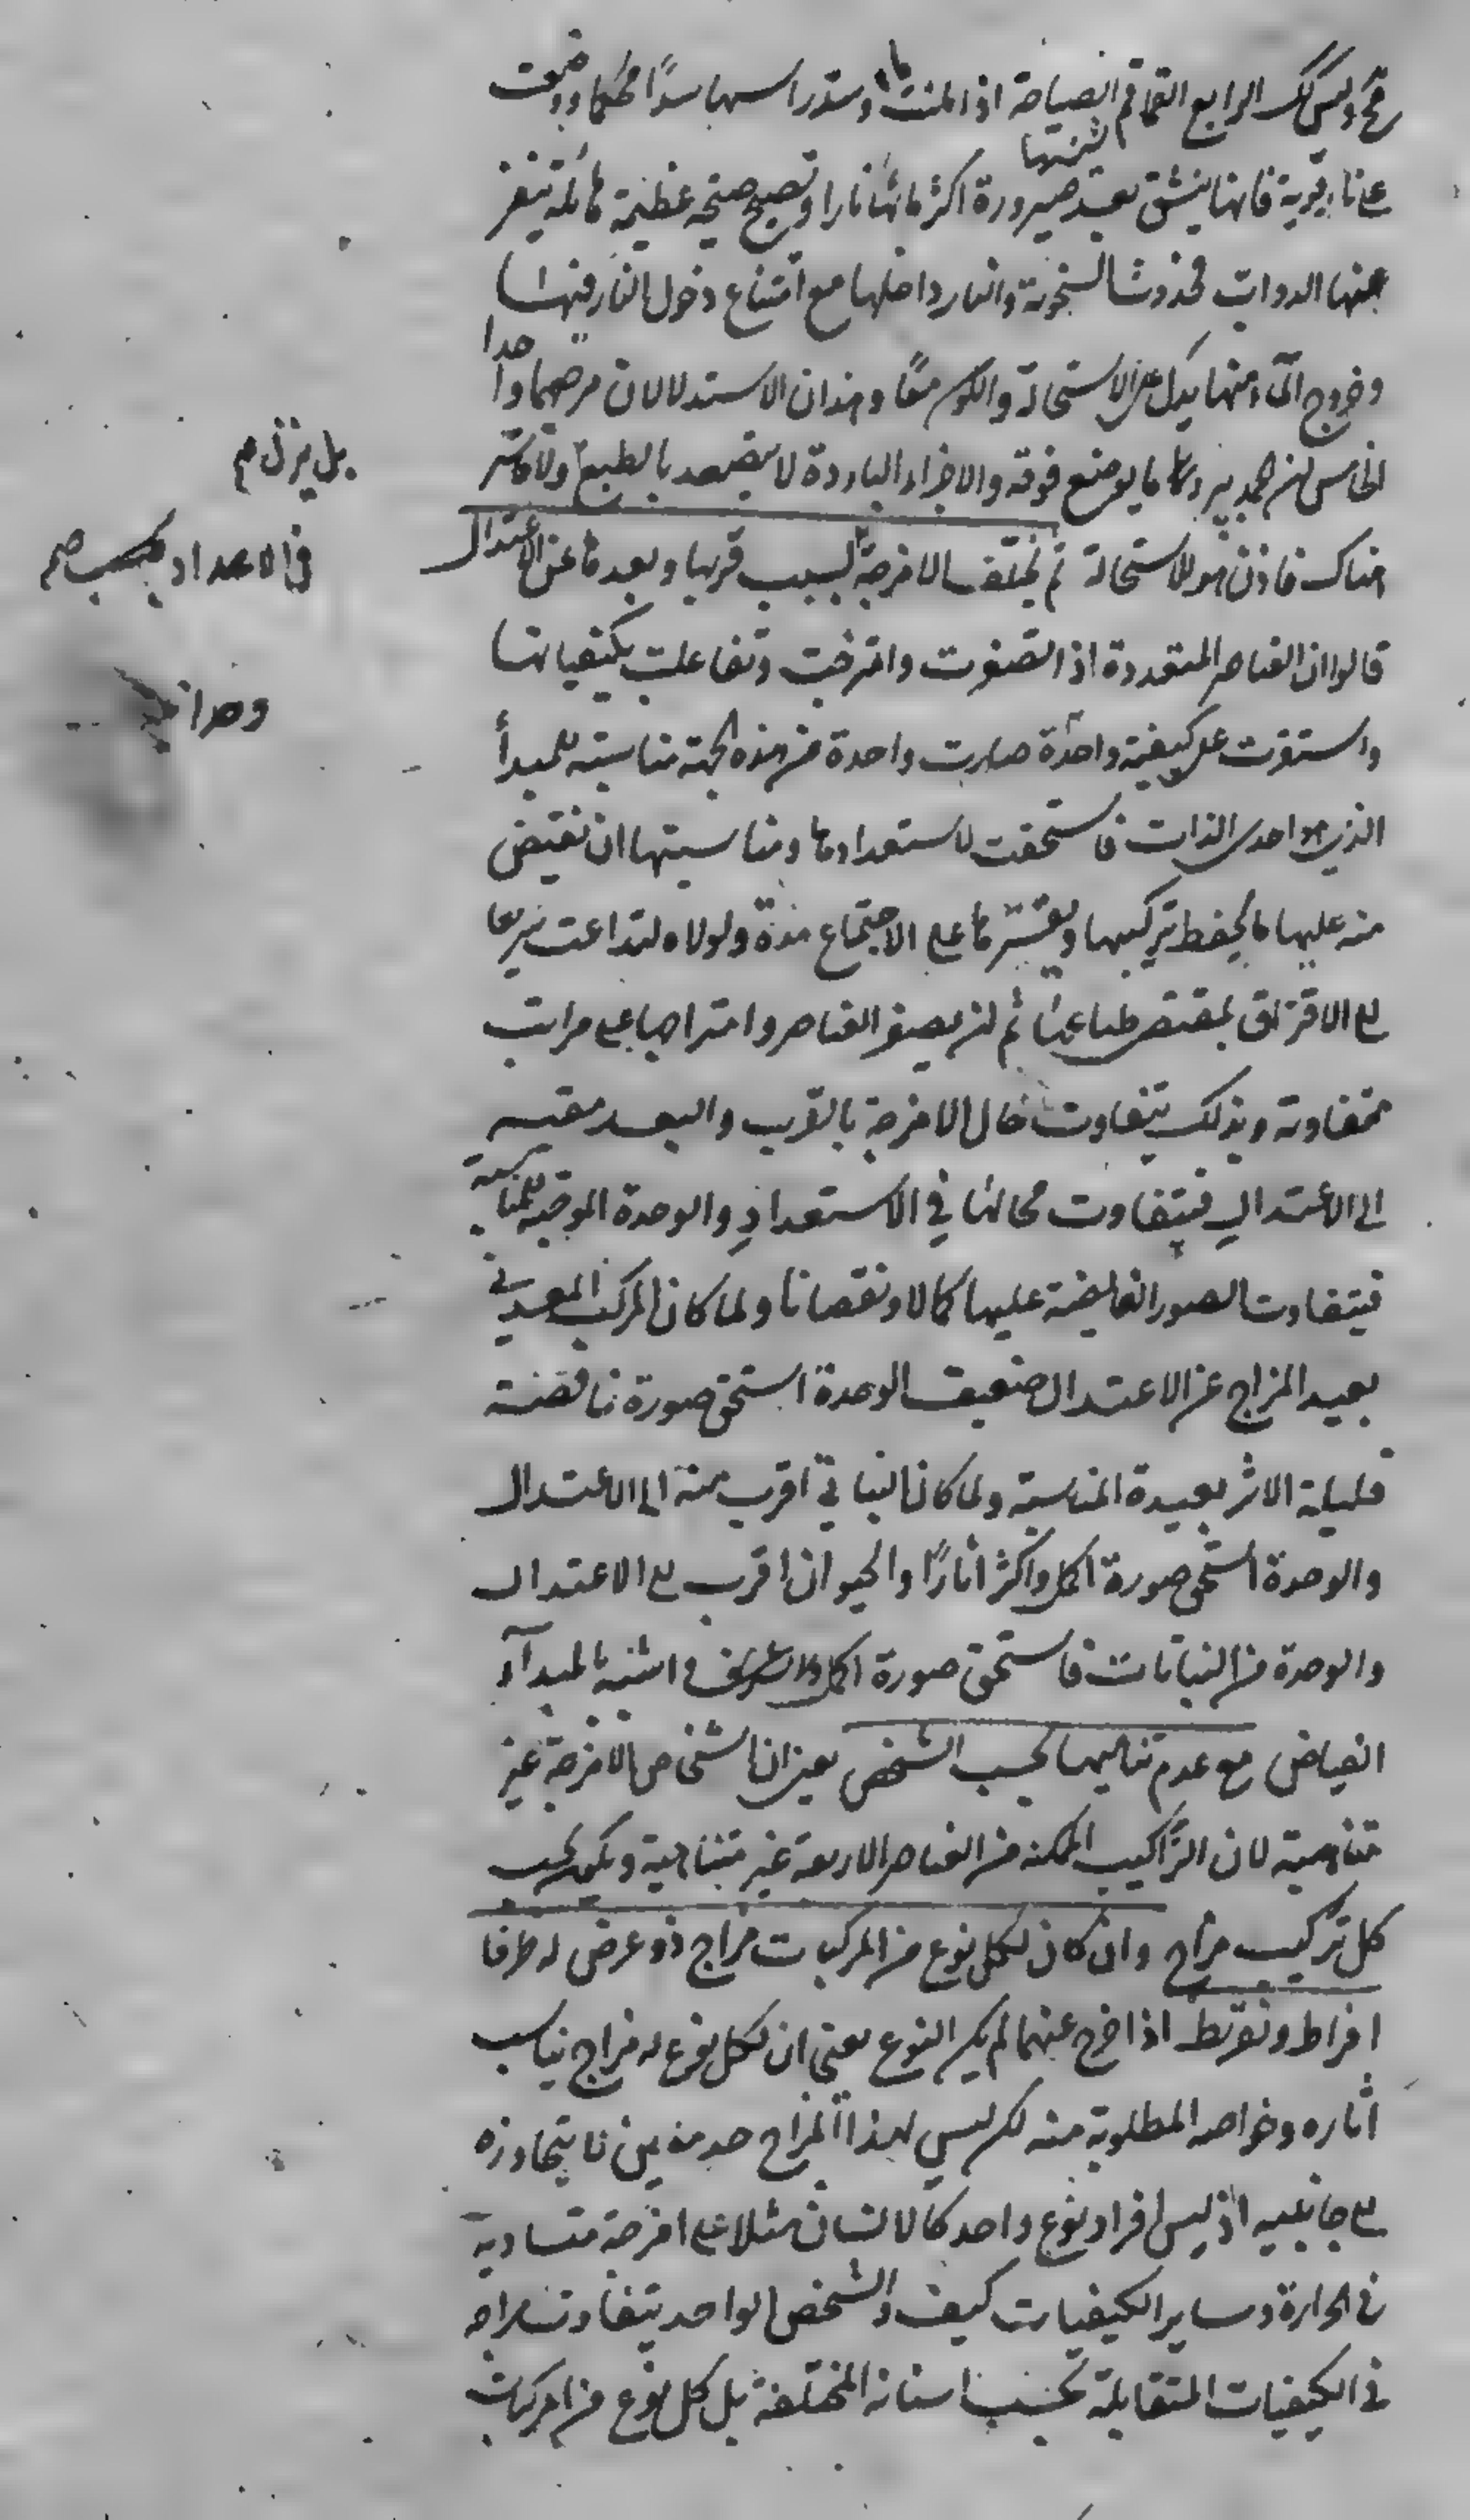 وليس كك الرابع القماقم الصياحة اذا ملئت ماء وسد راسها سدا محكما ووضعت
على نار قوية فانها ينشق بعد صيرورة اكثر مائها نارا وتصيح صيحة عظيمة هائلة يتنفر
عنها الدواب فحدوث السخونة والنار داخلها مع امتناع دخول النار فيها
وخروج الماء منها يدل على الاستحالة والكون معا وهذان الاستدلالان
الخامس ان الجمد يبرد ما يوضع فوقه والاجزاء الباردة لا يتصعد بالطبع ولا قاسر
بل ينزل صح
هناك فاذن هو للاستحالة ثم يختلف الامزجة بسبب قربها وبعدها عن الاعتدال
في الاعداد بحسب صح
قالوا ان العناصر المتعددة اذا تصغرت وامتزجت وتفاعلت بكيفياتها
واستقرت على كيفية واحدة صارت واحدة من هذه الجهة مناسبة للمبدأ
الذي هو احدى الذات فاستحقت لاستعدادها ومناسبتها ان تفيض
منه عليها ما يحفظ تركيبها ويقسرها على الاجتماع مدة ولولاه لتداعت سريعا
الى الافتراق بمقتضى طباعها ثم ان تصغر العناصر وامتزاجها على مراتب
متفاوتة وبذلك يتفاوت حال الامزجة بالقرب والبعد مقيسة
الى الاعتدال فيتفاوت محالها في الاستعداد والوحدة الموجبة للمناسبة
فيتفاوت الصور الفايضة عليها كمالا ونقصانا ولما كان المركب المعدني
بعيد المزاج عن الاعتدال ضعيف الوحدة استحق صورة ناقصة
قليلة الاثر بعيدة المناسبة ولما كان النباتي اقرب منه الى الاعتدال
والوحدة استحق صورة اكمل واكثر اثارا والحيوان اقرب الى الاعتدال
والوحدة من النباتات فاستحق صورة اكمل واشرف واشبه بالمبدأ
الفياض مع عدم تناهيها بحسب الشخص يعني ان اشخاص الامزجة غير
متناهية لان التراكيب الممكنة من العناصر الاربعة غير متناهية ويكون بحسب
كل تركيب مزاج وان كان لكل نوع من المركبات مزاج ذو عرض له طرفا
افراط وتفريط اذا خرج عنهما لم يكن النوع يعني ان لكل نوع له مزاج يناسب
اثاره وخواصه المطلوبة منه لكن ليس لهذا المزاج حد معين لا يتجاوزه
الى جانبيه اذ ليس افراد نوع واحد كالانسان مثلا على امزجة متساوية
في الحرارة وساير الكيفيات كيف والشخص الواحد يتفاوت مزاجه
في الكيفيات المتقابلة بحسب اسنانه المختلفة بل كل نوع من المركبات